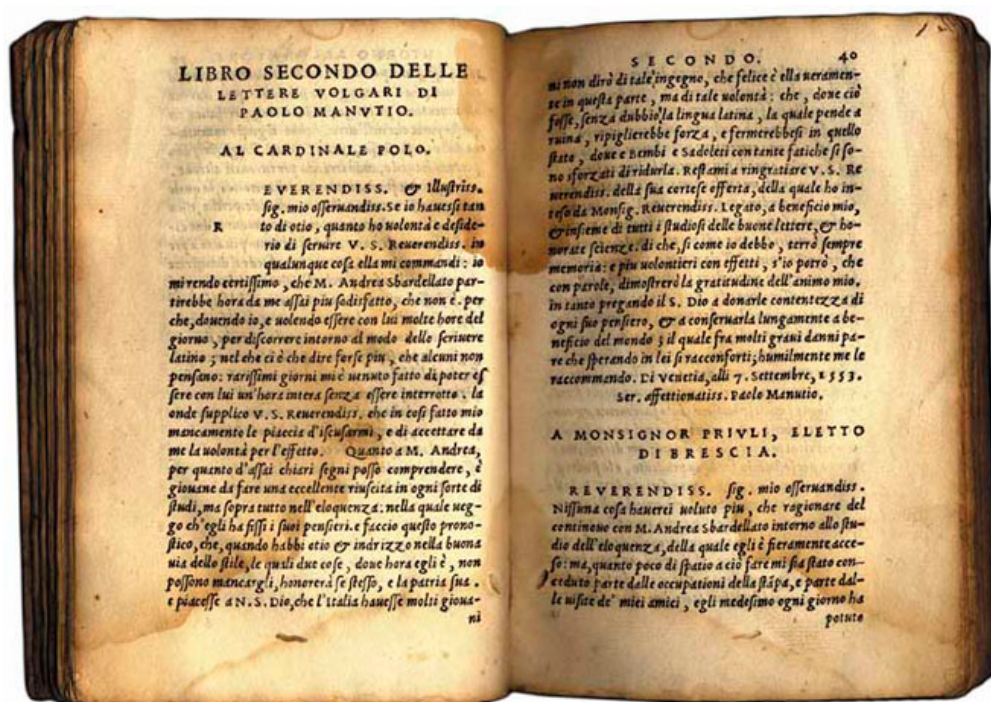 LIBRO SECONDO DELLE
LETTERE VOLGARI DI
PAOLO MANVTIO.
AL CARDINALE POLO.
R
EVERENDISS. & Illuſtriſs.
ſig. mio oſſeruandiſs. Se io haueſsi tan
to di otio, quanto ho uolontà e deſide-
rio di ſeruire V. S. Reuerendiſs. in
qualunque coſa ella mi commandi: io
mi rendo certiſsimo, che M. Andrea Sbardellato par-
tirebbe hora da me aſſai piu ſodisfatto, che non è. per
che, douendo io, e uolendo eſſere con lui molte hore del
giorno, per diſcorrere intorno al modo dello ſcriuere
latino; nel che ci è che dire forſe piu, che alcuni non
penſano: rariſsimi giorni mi è uenuto fatto di poter eſ
ſere con lui un'hora intera ſenza eſſere interrotto. la
onde ſupplico V. S. Reuerendiſs. che in coſi fatto mio
mancamento le piaccia d'iſcuſarmi, e di accettare da
me la uolontà per l'effetto. Quanto a M. Andrea,
per quanto d'aſſai chiari ſegni poſſo comprendere, è
giouane da fare una eccellente riuſcita in ogni ſorte di
ſtudi, ma ſopra tutto nell'eloquenza: nella quale ueg-
go ch'egli ha fiſſi i ſuoi penſieri. e faccio queſto prono-
ſtico, che, quando habbi otio & indrizzo nella buona
uia dello ſtile, le quali due coſe, doue hora egli è, non
poſſono mancargli, honorerà ſe ſteſſo, e la patria ſua.
e piaceſſe a N. S. Dio, che l'Italia haueſſe molti gioua-
ni
SECONDO. 40
mi non dirò di tale ingegno, che felice è ella ueramen-
te in queſta parte, ma di tale uolontà: che, doue ciò
foſſe, ſenza dubbio la lingua latina, la quale pende a
ruina, ripiglierebbe forza, e fermerebbeſi in quello
ſtato, doue e Bembi e Sadoleti con tante fatiche ſi ſo-
no sforzati di ridurla. Reſtami a ringratiare V. S. Re
uerendiſs. della ſua corteſe offerta, della quale ho in-
teſo da Monſig. Reuerendiſs. Legato, a beneficio mio,
& inſieme di tutti i ſtudioſi delle buone lettere, & ho-
norate ſcienze. di che, ſi come io debbo, terrò ſempre
memoria: e piu uolontieri con effetti, s'io potrò, che
con parole, dimoſtrerò la gratitudine dell'animo mio.
in tanto pregando il S. Dio a donarle contentezza di
ogni ſuo penſiero, & a conſeruarla lungamente a be-
neficio del mondo; il quale fra molti graui danni pa-
re che ſperando in lei ſi racconforti; humilmente me le
raccommando. Di Venetia, alli 7. Settembre, 1553.
Ser. affettionatiſs. Paolo Manutio.
A MONSIGNOR PRIVLI, ELETTO
DI BRESCIA.
REVERENDISS. ſig. mio oſſeruandiſs.
Niſſuna coſa hauerei uoluto piu, che ragionare del
continouo con M. Andrea Sbardellato intorno allo ſtu-
dio dell'eloquenza, della quale egli è fieramente acce-
ſo: ma, quanto poco di ſpatio a ciò fare mi ſia ſtato con-
ceduto parte dalle occupationi della ſtãpa, e parte dal-
le uiſite de' miei amici, egli medeſimo ogni giorno ha
potuto